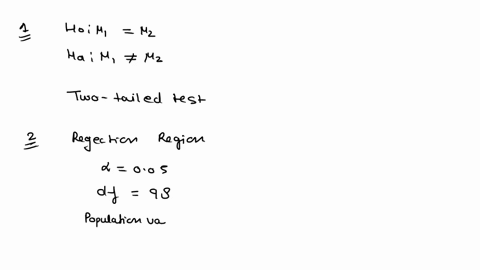 1 Ho: M1 = M2
Ha: M1 ≠ M2
Two-tailed test
2 Regection Region
α = 0.05
df = 98
Population va